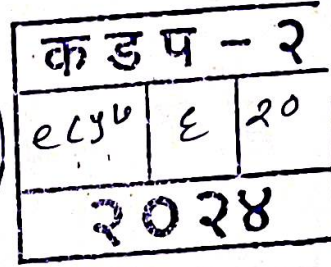 कडप - २
९८५७ ६ २०
२०२४